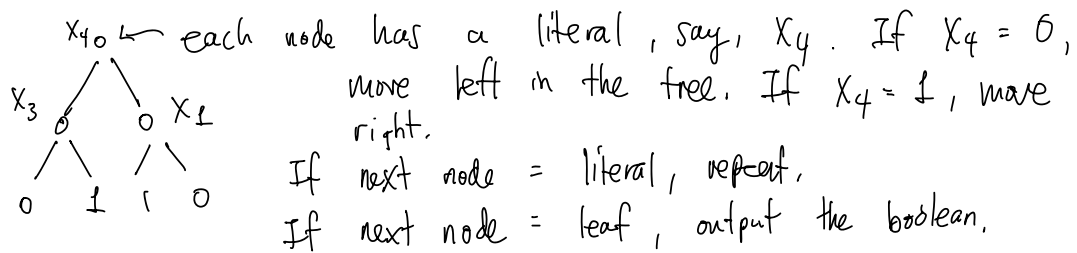 X4 each node has a literal, say, X4. If X4 = 0,
X3 X1 move left in the tree. If X4 = 1, move
right.
0 1 1 0 If next node = literal, repeat.
If next node = leaf, output the boolean.